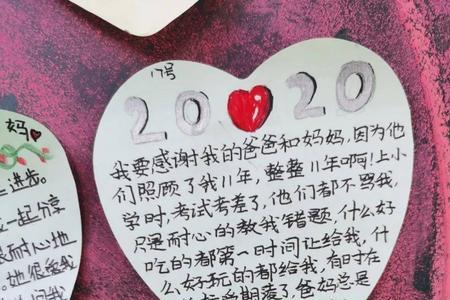 17号
20 20
我要感谢我的爸爸和妈妈,因为他
们照顾了我11年,整整11年啊!上小
学时,考试考差了,他们都不骂我,
只是耐心的教我错题,什么好
吃的都第一时间让给我,什
么好玩的都给我,有时在
爸妈总是
妈
进步。
一起分享
耐心地